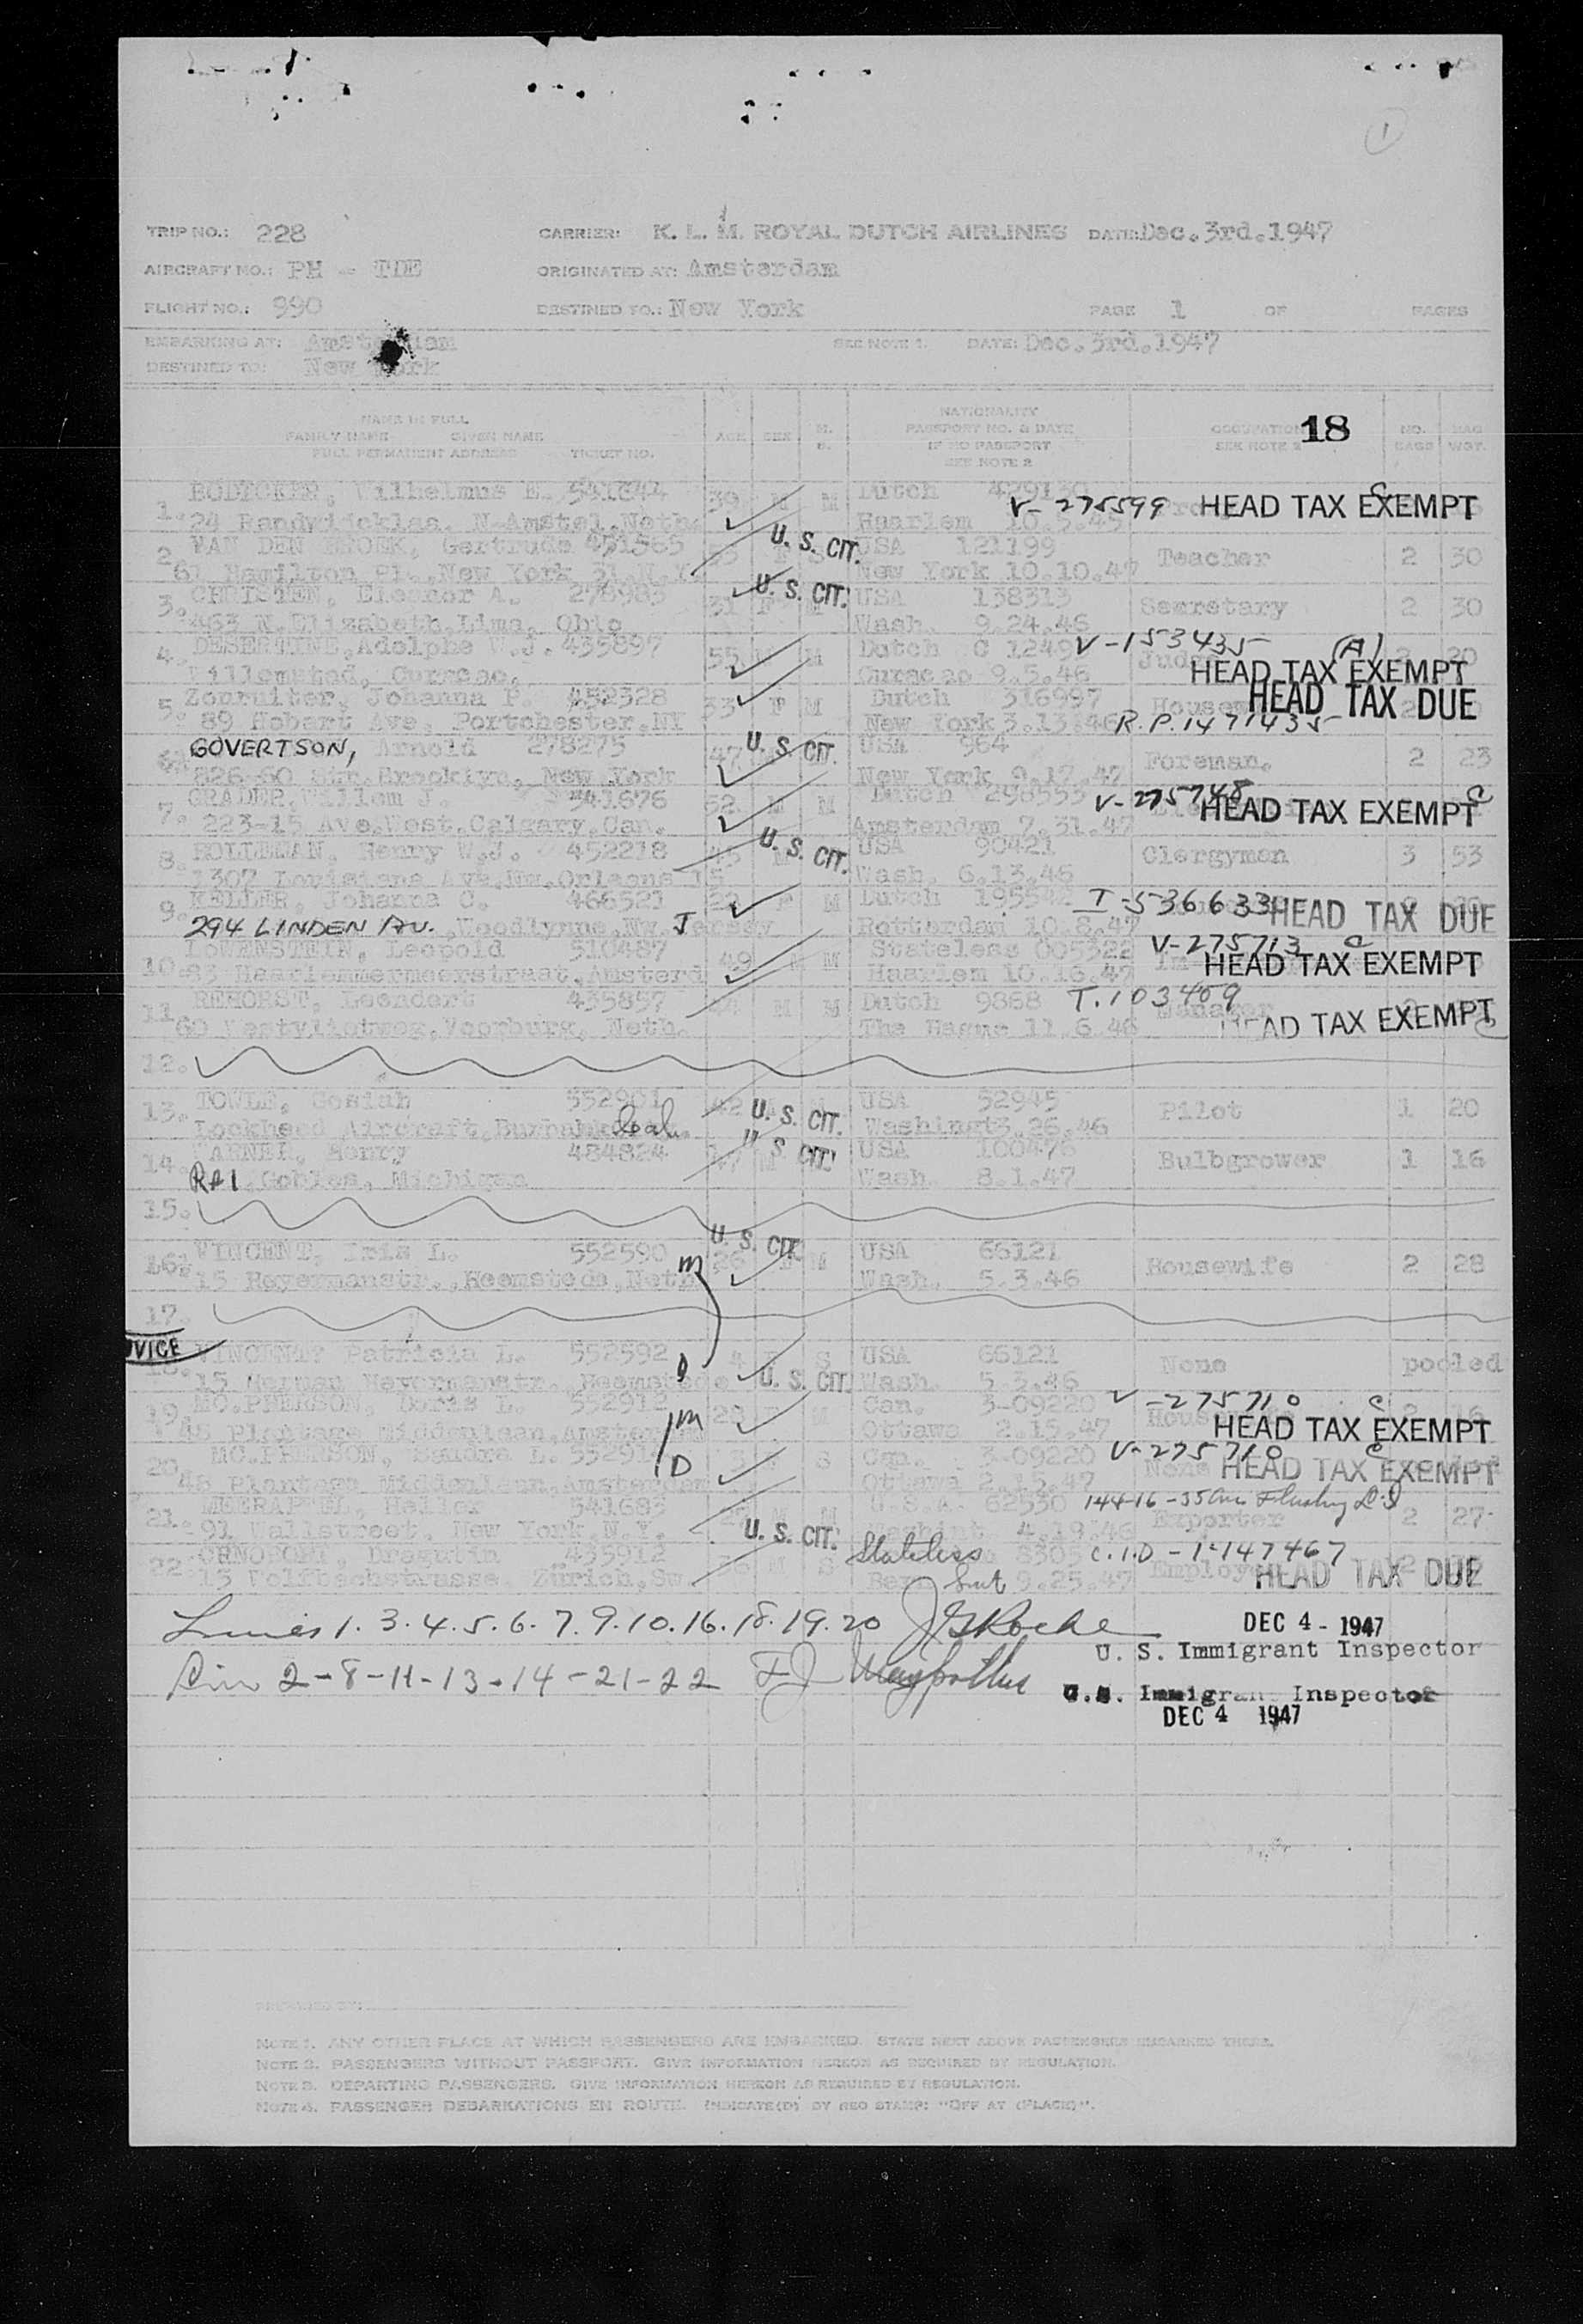 1
TRIP NO.: 228 CARRIER: K. L. M. ROYAL DUTCH AIRLINES DATE: Dec. 3rd. 1947
AIRCRAFT NO.: PH - TDE ORIGINATED AT: Amsterdam
FLIGHT NO.: 990 DESTINED TO.: New York PAGE 1 OF PAGES
EMBARKING AT: Amsterdam SEE NOTE 1. DATE: Dec. 3rd. 1947
DESTINED TO: New York
NAME IN FULL AGE SEX M. S. NATIONALITY OCCUPATION 18 NO. BAGS BAG WGT.
FAMILY NAME GIVEN NAME PASSPORT NO. & DATE SEE NOTE 2
FULL PERMANENT ADDRESS TICKET NO. IF NO PASSPORT
SEE NOTE 2
1. Wilhelmus E. 541644 39 M M Dutch V-275599 HEAD TAX EXEMPT
24 N-Amstel, Neth. Haarlem 10.5.45
2. VAN DEN BROEK, Gertrude U. S. CIT. USA 121199 Teacher 2 30
61 Hamilton Pl., New York 31. N.Y. New York 10.10.47
3. CHRISTEN, Eleanor A. 31 F U. S. CIT. USA 138313 Secretary 2 30
463 N. Elizabeth, Lima, Ohio Wash. 9.24.46
4. Adolphe 435897 55 M Dutch C 1249 V-153435 (A) 20
Curacao. Curacao 9.5.46 HEAD TAX EXEMPT
5. Johanna P. 452328 33 F M Dutch 316997 HEAD TAX DUE
89 Hobart Ave. Portchester, NY New York 3.13.46 R.P.1471435
6. GOVERTSON, Arnold 278275 47 U. S. CIT. USA 964 Foreman. 2 23
826-60 Str. Brooklyn, New York New York 9.17.47
7. GRADER, Willem J. 541676 52 M M Dutch V-275748 HEAD TAX EXEMPT
223-15 Ave. West. Calgary. Can. Amsterdam 7.31.47
8. Henry W.J. 452218 U. S. CIT. USA 90421 Clergyman 3 53
1307 Louisiana Ave. Nw. Orleans 15 Wash. 6.13.46
9. KELLER, Johanna C. 466521 F M Dutch T-536633 HEAD TAX DUE
294 LINDEN AV., Woodlynne, Nw. Jersey Rotterdam 10.8.47
10. LOWENSTEIN, Leopold 510487 49 M M Stateless 005322 V-275713 C
Haarlemmermeerstraat, Amsterd Haarlem 10.16.47 HEAD TAX EXEMPT
11. REHORST, Leendert 435857 M M Dutch 9868 T.103409 Manager
60 Voorburg, Neth. The Hague 11.6.46 HEAD TAX EXEMPT
12.
13. TOWLE, Gosiah 552901 42 U. S. CIT. USA 52945 Pilot 1 20
Lockheed Aircraft, Burbank Cal. Washingt 3.26.46
14. Henry 484824 U. S. CIT. USA 100476 Bulbgrower 1 16
R#1, Gobles, Michigan Wash. 8.1.47
15.
16. VINCENT, Iris L. 552590 26 F M U. S. CIT. USA 66121 Housewife 2 28
15 Heyermanstr., Heemstede, Neth Wash. 5.3.46
M
17.
18. VINCENT Patricia L. 552592 4 S USA 66121 None pooled
15 Herman Heyermanstr. Heemstede U. S. CIT. Wash. 5.3.46
D
19. MC.PHERSON, Doris 552912 28 F M Can. 3-09220 V-275710 C
48 Plantage Middenlaan, Amsterdam Ottawa 2.15.47 HEAD TAX EXEMPT
M
20. MC.PHERSON, Sandra L. S Can. 3-09220 V-275710 C
48 Plantage Middenlaan, Amsterdam Ottawa 2.15.47 None HEAD TAX EXEMPT
D
21. Heller 541683 M U.S.A. 62530 144-16-35 Ave Flushing L.I Exporter 2 27
91 Wallstreet, New York, N.Y. U. S. CIT. 4.19.46
22. Dragutin 435912 M S Stateless C.I.D - 1-147467
13 Zurich, Sw. 9.25.47 HEAD TAX DUE
Lines 1. 3. 4. 5. 6. 7. 9. 10. 16. 18. 19. 20 DEC 4 - 1947
U. S. Immigrant Inspector
2-8-11-13-14-21-22
U.S. Immigrant Inspector
DEC 4 1947
PREPARED BY:
NOTE 1. ANY OTHER PLACE AT WHICH PASSENGERS ARE EMBARKED. STATE NEXT ABOVE PASSENGERS EMBARKED THERE.
NOTE 2. PASSENGERS WITHOUT PASSPORT. GIVE INFORMATION HEREON AS REQUIRED BY REGULATION.
NOTE 3. DEPARTING PASSENGERS. GIVE INFORMATION HEREON AS REQUIRED BY REGULATION.
NOTE 4. PASSENGER DEBARKATIONS EN ROUTE. INDICATE(D) BY RED STAMP: "OFF AT (PLACE)".